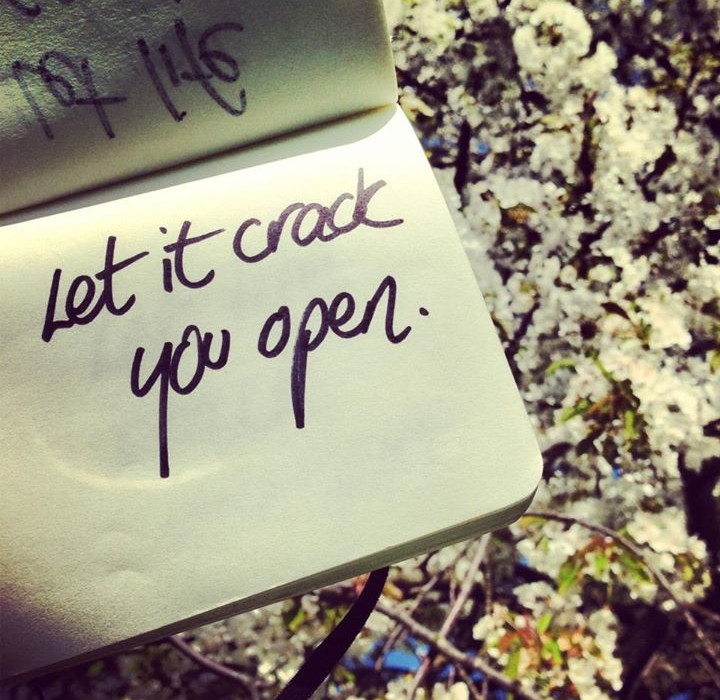 Let it crack
you open.